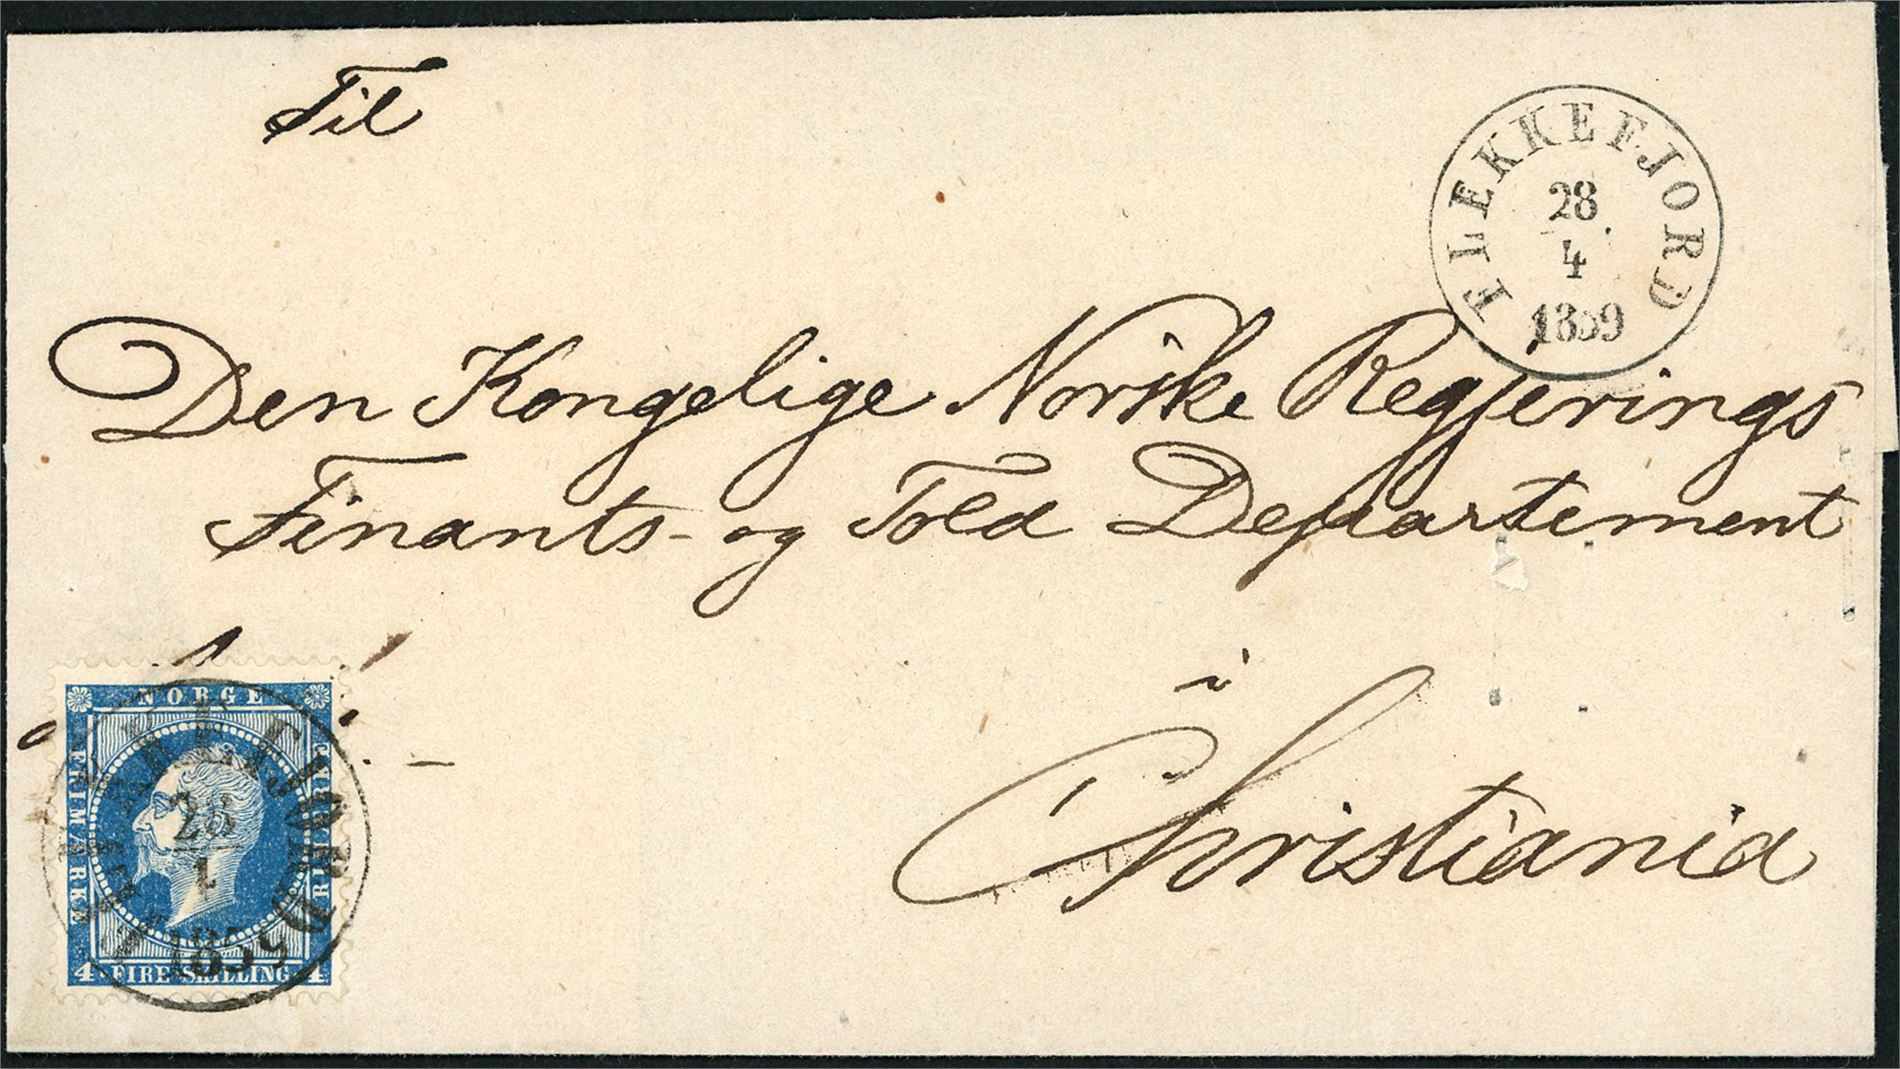 Til
FLEKKEFJORD
28
4
1859
Den Kongelige Norske Regjerings
Finants- og Told Departement
i
Christiania
NORGE
FRIMÆRKE
FRIMÆRKE
4 FIRE SKILLING 4
FLEKKEFJORD
28
4
1859